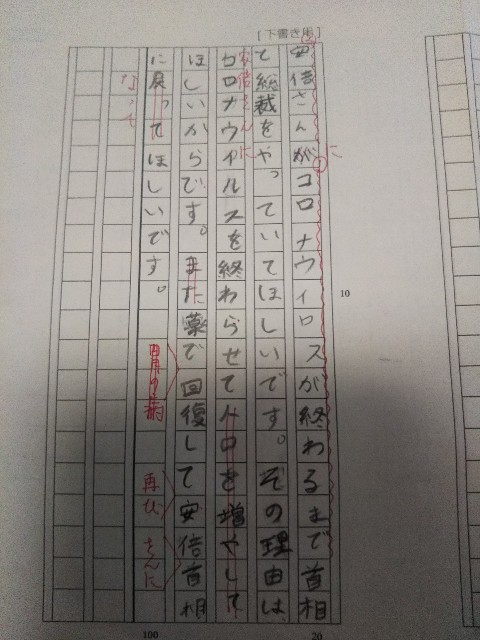 [下書き用]
安倍さんがコロナウイロスが終わるまで首相
に
て総裁をやっていてほしいです。その理由は
安倍さんに
コロナウイルスを終わらせて人口を増やして
ほしいからです。また薬で回復して安倍首相
胃の薬
再び
さんに
に戻ってほしいです。
なって
10
20
100